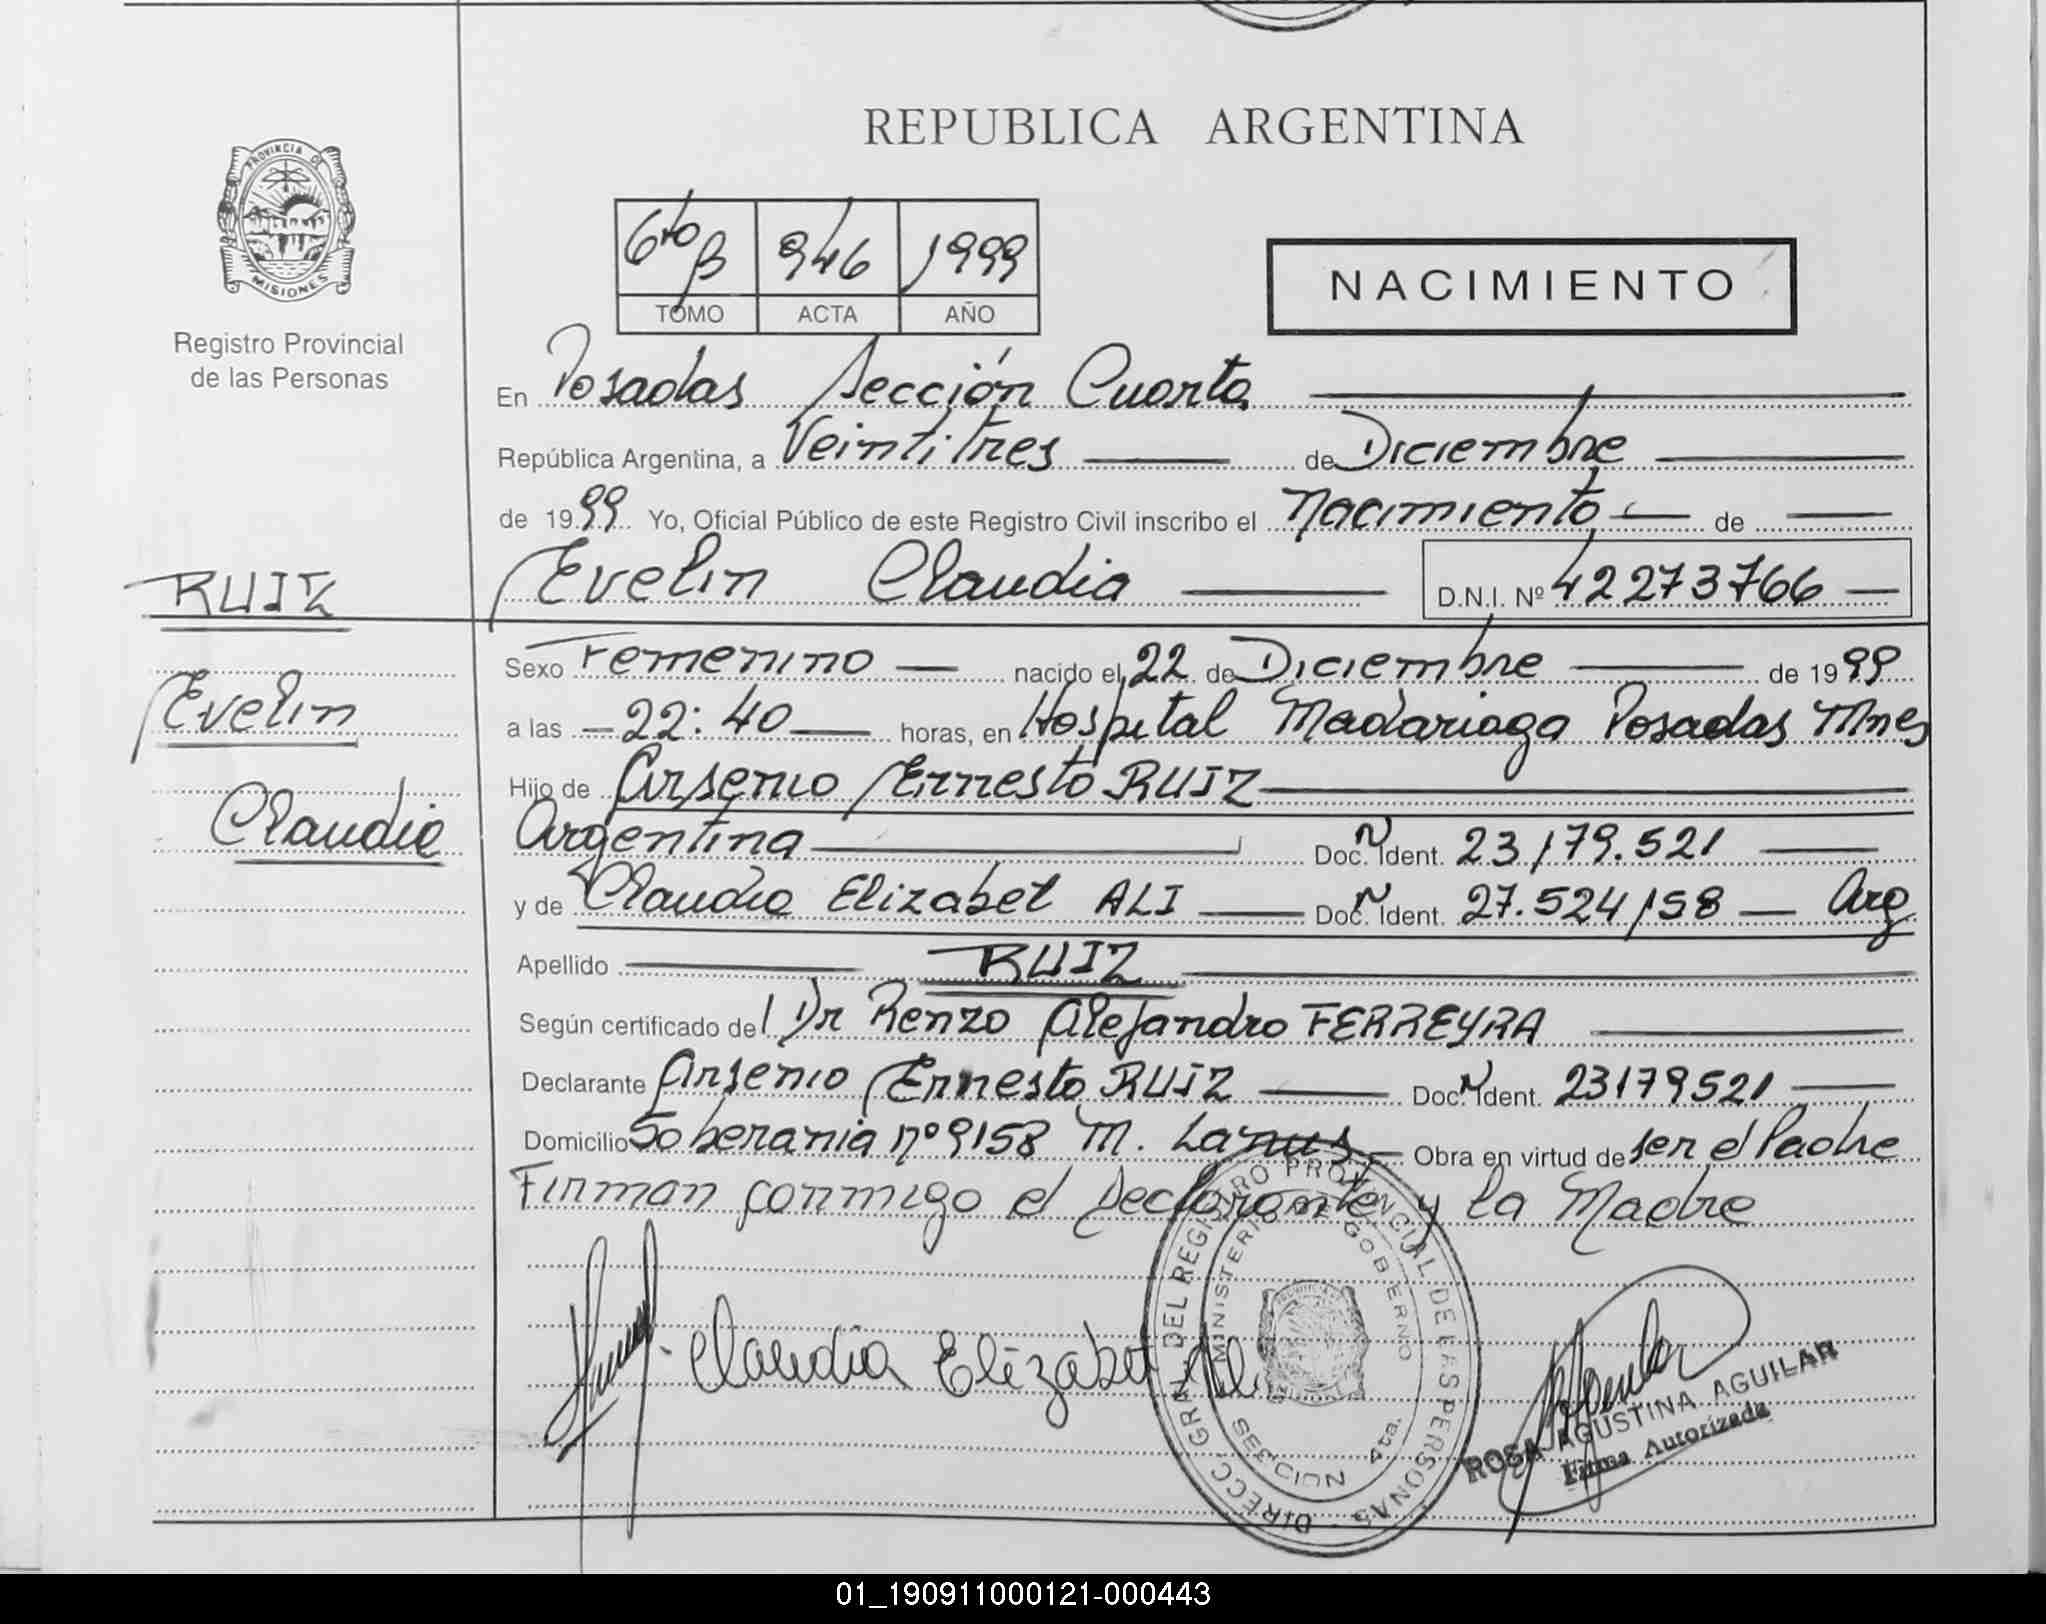 REPUBLICA ARGENTINA
PROVINCIA DE
MISIONES
Registro Provincial
de las Personas
6to B 946 1999
TOMO ACTA AÑO
NACIMIENTO
En Posadas Sección Cuarta
República Argentina, a Veintitres de Diciembre
de 1999 Yo, Oficial Público de este Registro Civil inscribo el Nacimiento de
Evelin Claudia D.N.I. Nº 42273766
RUIZ
Evelin
Claudia
Sexo Femenino nacido el 22 de Diciembre de 1999
a las 22:40 horas, en Hospital Madariaga Posadas Mnes
Hijo de Arsenio Ernesto RUIZ
Argentina Doc. Ident. 23179.521
y de Claudia Elizabet ALI Doc. Ident. 27.524158 Arg
Apellido RUIZ
Según certificado del Dr Renzo Alejandro FERREYRA
Declarante Arsenio Ernesto RUIZ Doc. Ident. 23179521
Domicilio Soberania nº 9158 M. Lanus Obra en virtud de ser el Padre
Firman conmigo el Declarante y la Madre
Claudia Elizabet Ali
DIRECC GRAL DEL REGISTRO PROVINCIAL DE LAS PERSONAS
MINISTERIO DE GOBIERNO
SECCION 4ta.
ROSA AGUSTINA AGUILAR
Firma Autorizada
01_190911000121-000443